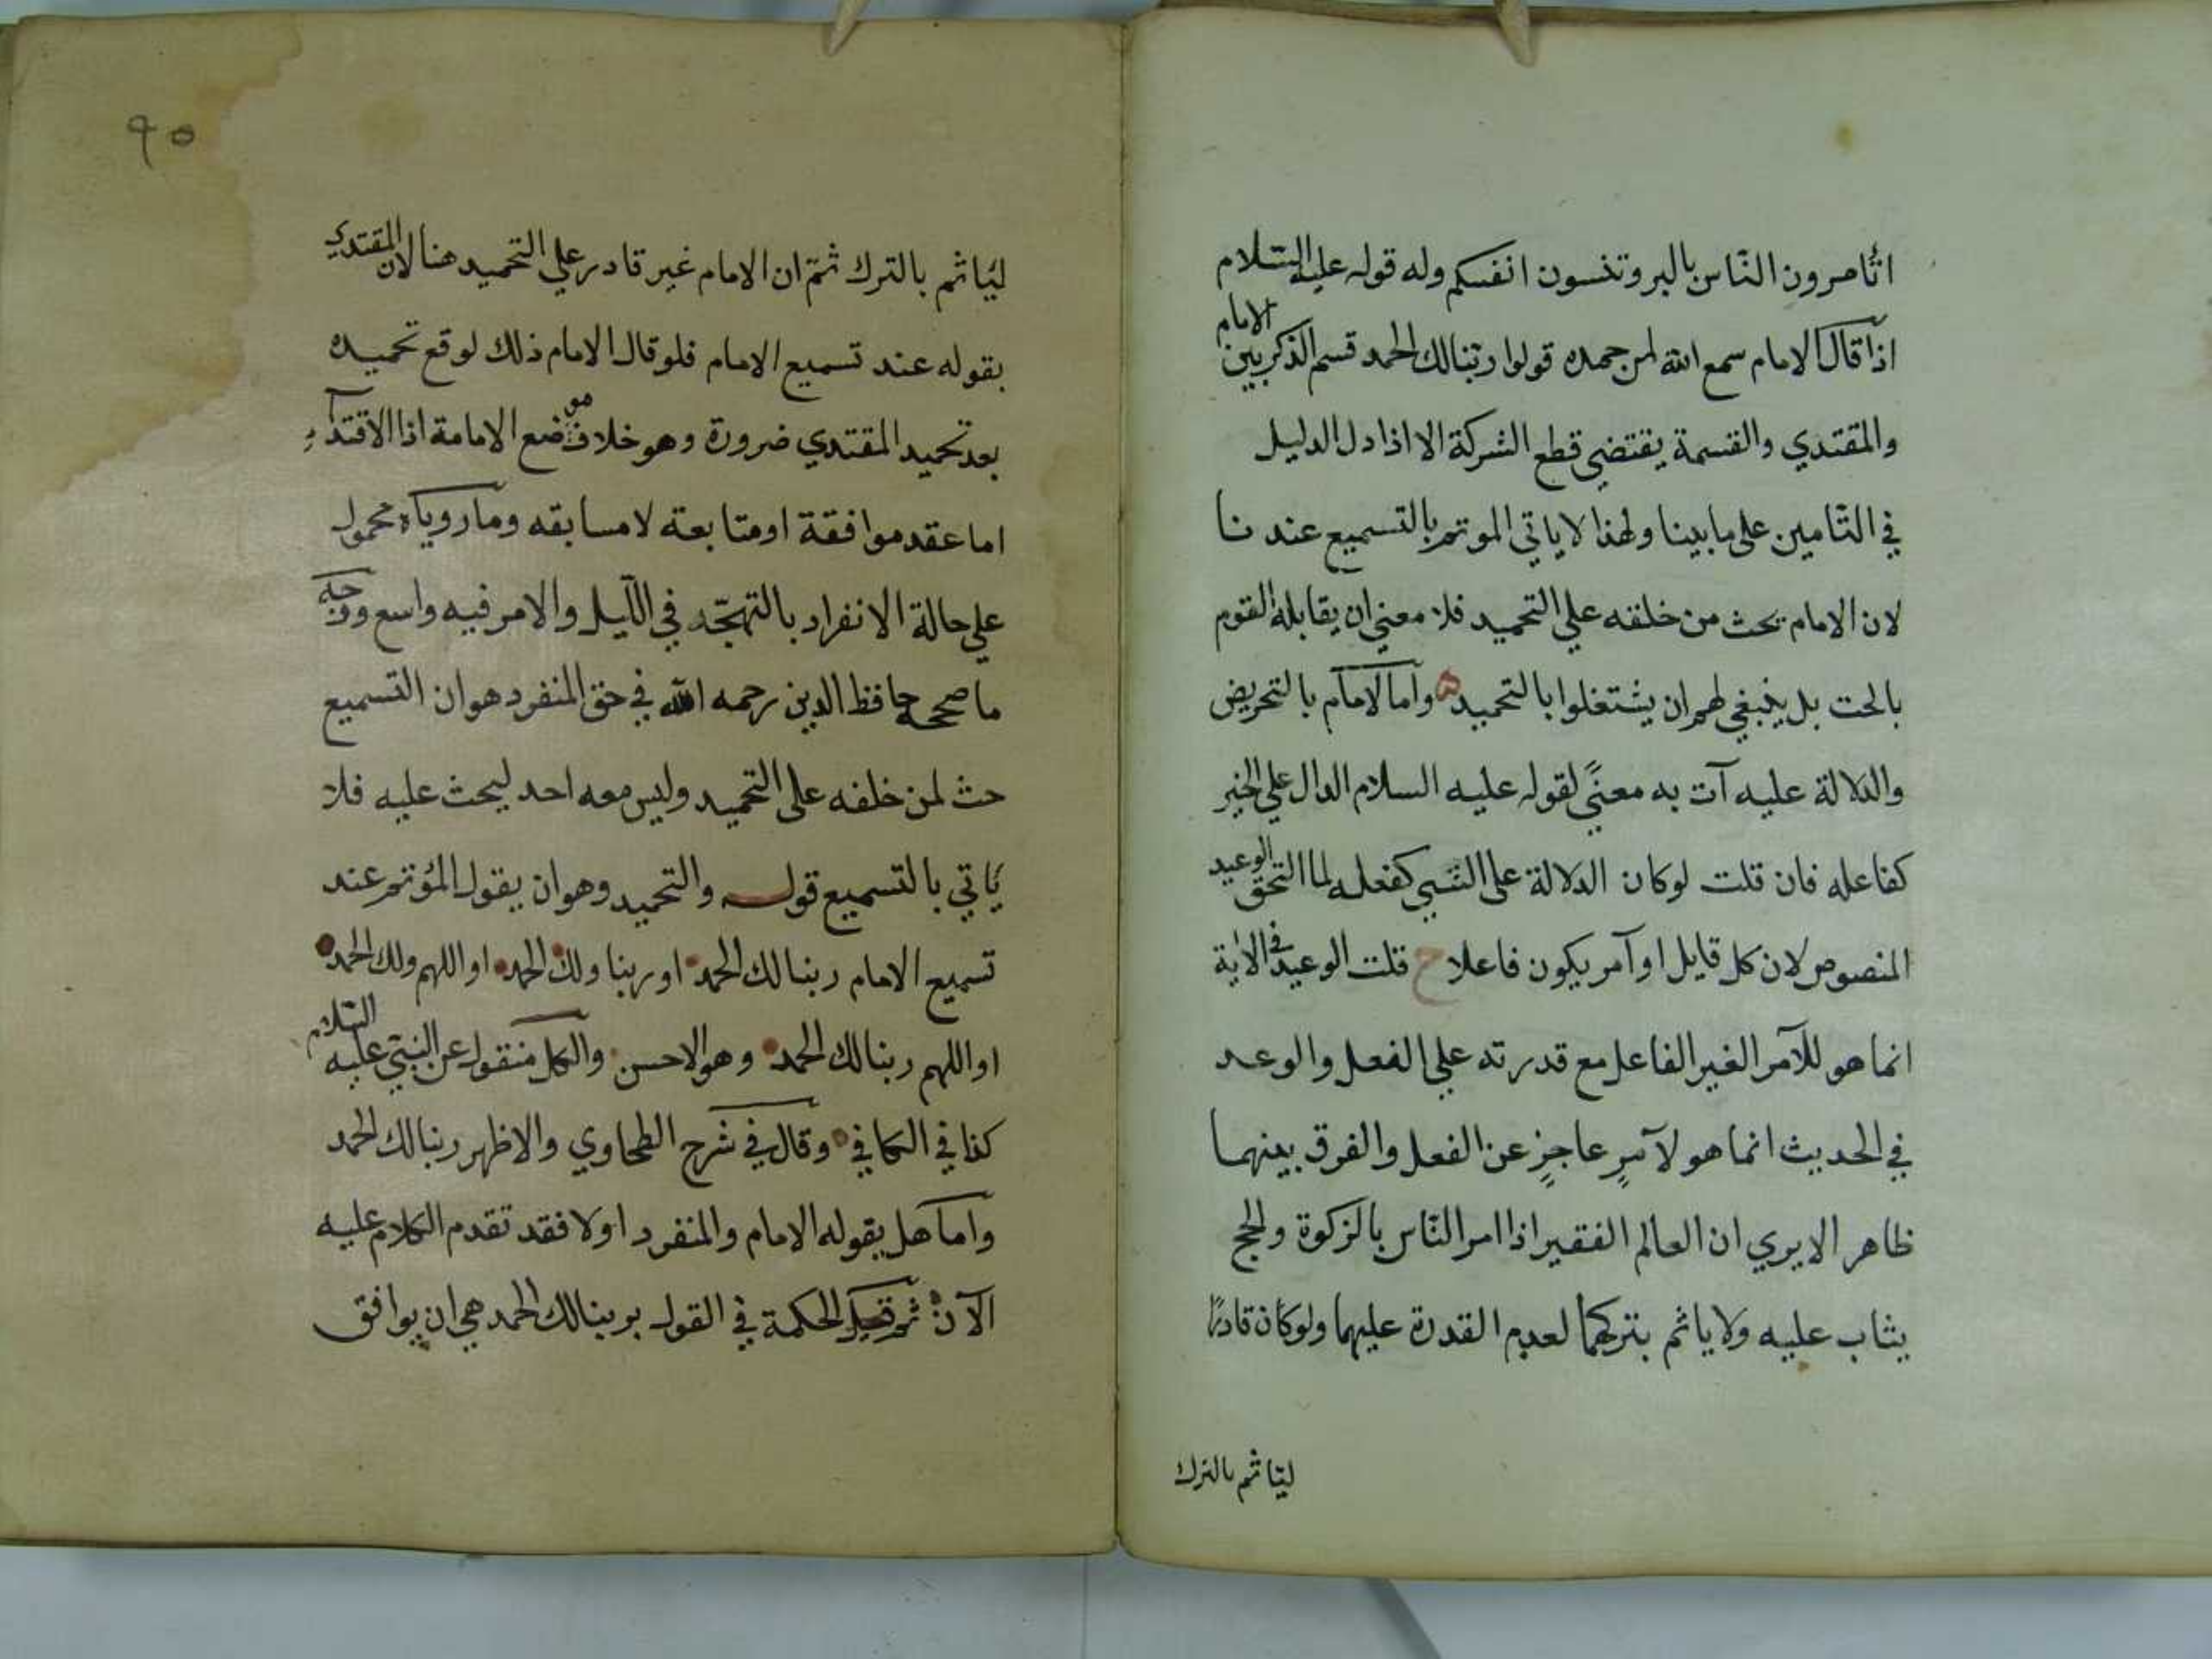 اتامرون الناس بالبر وتنسون انفسكم وله قوله عليه السلام
اذا قال الامام سمع الله لمن حمده قولوا ربنا لك الحمد قسم الذكر بين الامام
والمقتدي والقسمة يقتضي قطع الشركة الا اذا دل الدليل
في التامين على ما بينا ولهذا لا ياتي الموتم بالتسميع عندنا
لان الامام يحث من خلفه علي التحميد فلا معني ان يقابله القوم
بالحث بل ينبغي لهم ان يشتغلوا بالتحميد واما الامام بالتحريض
والدلالة عليه آت به معنًي لقوله عليه السلام الدال علي الخير
كفاعله فان قلت لو كان الدلالة علي الشي كفعله لما التحق الوعيد
المنصوص لان كل قايل او آمر يكون فاعلا ح قلت الوعيد في الاية
انما هو للآمر الغير الفاعل مع قدرته علي الفعل والوعد
في الحديث انما هو لآمرٍ عاجزٍ عن الفعل والفرق بينهما
ظاهر الا يري ان العالم الفقير اذا امر الناس بالزكوة والحج
يثاب عليه ولا ياثم بتركهما لعدم القدرة عليهما ولو كان قادرًا
ليَاثم بالترك
٩٥
ليَاثم بالترك ثمّ ان الامام غير قادر علي التحميد هنا لان المقتدي
بقوله عند تسميع الامام فلو قال الامام ذلك لوقع تحميده
بعد تحميد المقتدي ضرورة وهو خلاف موضع الامامة اذا الاقتداء
اما عقد موافقة او متابعة لا مسابقه وما روياه محمول
علي حالة الانفراد بالتهجّد في الليل والامر فيه واسع ووجه
ما صححه حافظ الدين رحمه الله في حق المنفرد هو ان التسميع
حث لمن خلفه على التحميد وليس معه احد ليحث عليه فلا
يَاتي بالتسميع قوله والتحميد وهو ان يقول المؤتم عند
تسميع الامام ربنا لك الحمد او ربنا ولك الحمد او اللهم ولك الحمد
او اللهم ربنا لك الحمد وهو الاحسن والكل منقول عن النبي عليه السلام
كذا في الكافي وقال في شرح الطحاوي والاظهر ربنا لك الحمد
واما هل يقوله الامام والمنفرد اولا فقد تقدم الكلام عليه
الآن ثم قيل الحكمة في القول بربنا لك الحمد هي ان يوافق